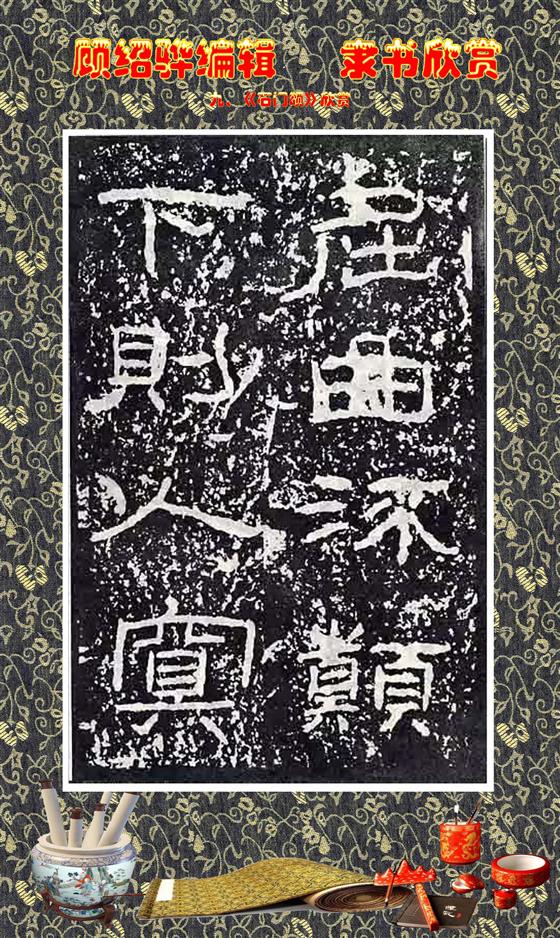 顾绍骅编辑 隶书欣赏
九、《石门颂》欣赏
屈曲流顛
下則入冥